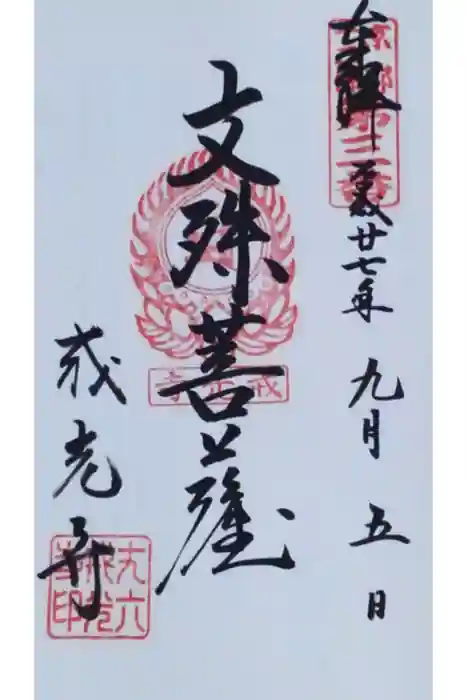 奉拝 平成廿七年 九月 五日
京都
第三番
文殊菩薩
戒光寺
戒光寺
丈六
戒光
寺印